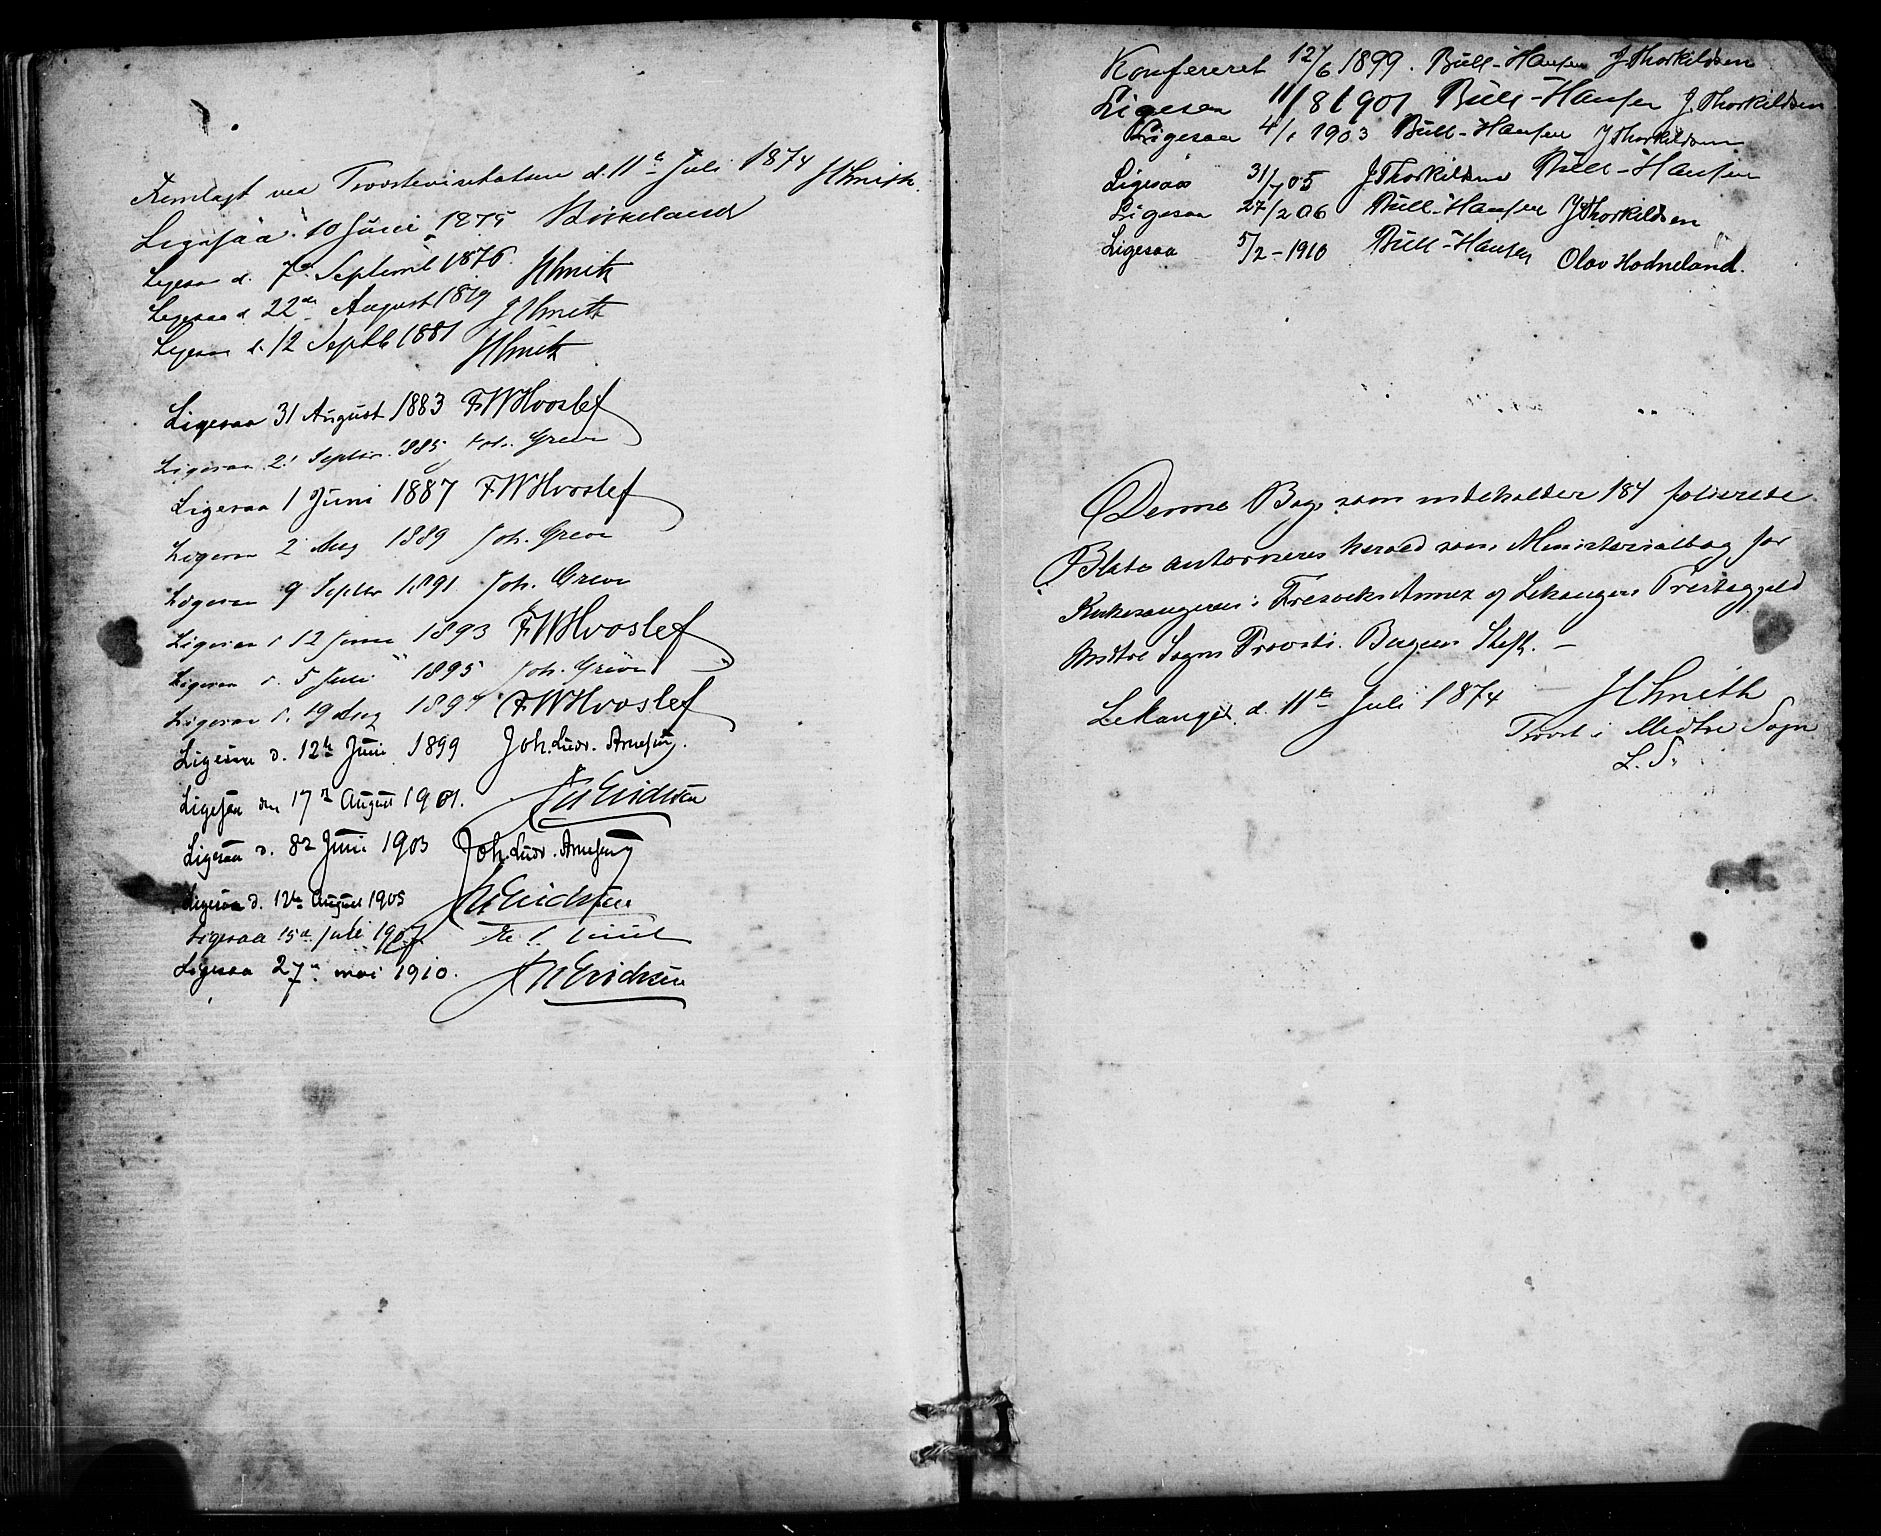 Fremlagt ved Provstevisitatsen d. 11te Juli 1874 JSmith.
Ligesaa 10 Juni 1875 Birkeland
Ligesaa d. 7de Septemb 1876. JSmith
Ligesaa d. 22de August 1879 JSmith
Ligesaa d. 12 Septb 1881 JSmith
Ligesaa 31 August 1883 FWHvoslef
Ligesaa 21 Septbr. 1885 Joh. Greve
Ligesaa 1 Juni 1887 FWHvoslef
Ligesaa 2 Aug 1889 Joh. Greve
Ligesaa 9 Septbr 1891 Joh. Greve
Ligesaa d 12 Juni 1893 FWHvoslef
Ligesaa d. 5 Juli 1895 Joh. Greve
Ligesaa d. 19 Aug 1897 FWHvoslef
Ligesaa d. 12te Juni 1899 Joh. Ludv. Arnesen.
Ligesaa den 17de August 1901.
Ligesaa d. Juni 1903 Joh. Ludv. Arnesen
Ligesaa d. 12te August 1905
Ligesaa 15de Juli 1907.
Ligesaa 27de mai 1910.
Konfereret 12/6 1899. Bull-Hansen J Thorkildsen
Ligesaa 11/8 1901 Bull-Hansen J. Thorkildsen
Ligesaa 4/1 1903 Bull-Hansen J Thorkildsen
Ligesaa 31/7 05 J Thorkildsen Bull-Hansen
Ligesaa 27/2 06 Bull-Hansen J Thorkildsen
Ligesaa 5/2 - 1910 Bull-Hansen Olav Hodneland.
Denne Bog, som indeholder 184 folierede
Blade autoriseres herved som Ministerialbog for
Kirkesangeren i Fresviks Annex af Lekangers Præstegjeld
Midtre Sogns Provsti. Bergens Stift. -
Lekanger d. 11te Juli 1874 JSmith
Provst i Midtre Sogn
L. S.